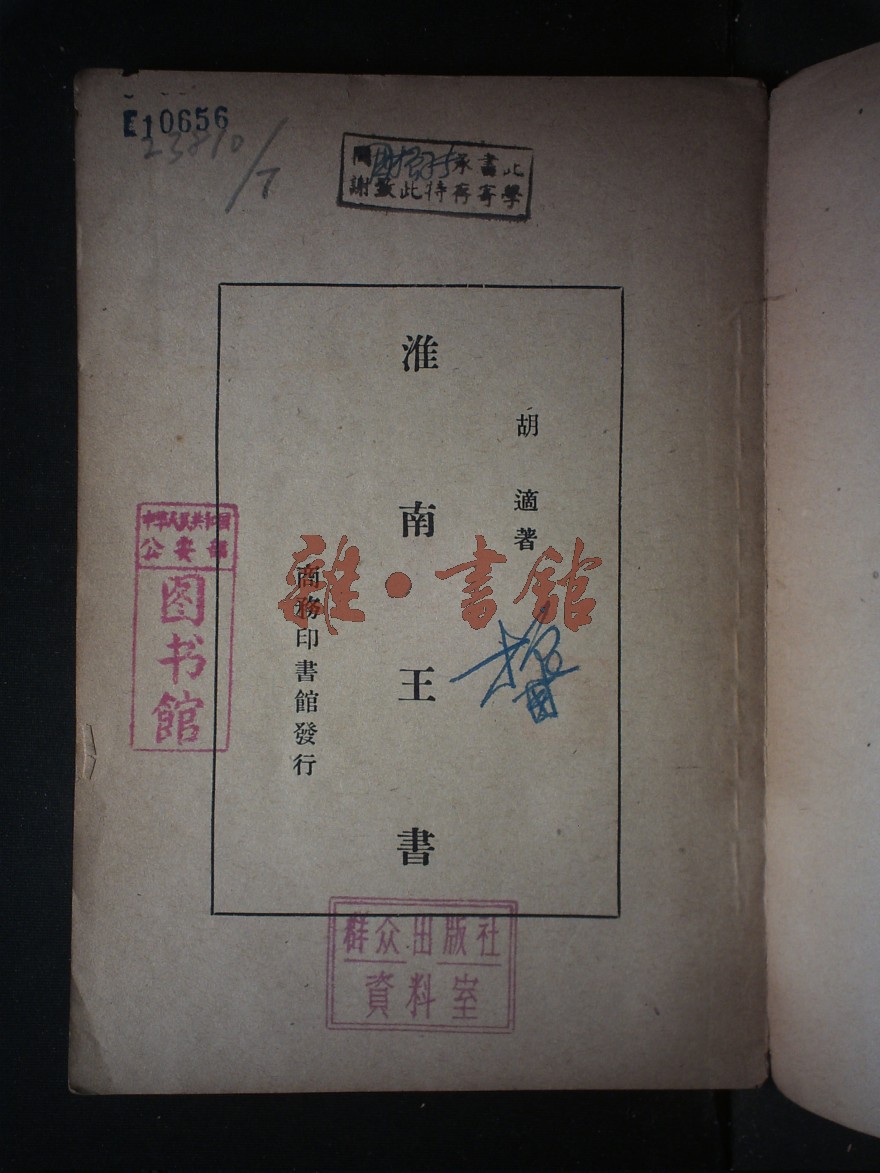 E10656
23810/7
此書承
學寄存特此致謝
胡適著
淮南王書
商務印書館發行
雜·書館
中华人民共和国
公安部
图书馆
群众出版社
資料室